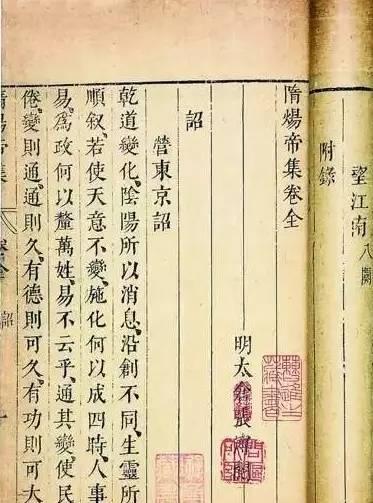 望江南八闋
附錄
隋煬帝集卷全
明太倉張溥閱
詔
營東京詔
乾道變化、陰陽所以消息、沿創不同、生靈所
順叙、若使天意不變、施化何以成四時、人事
易、爲政何以釐萬姓、易不云乎、通其變、使民
倦、變則通、通則久、有德則可久、有功則可大
隋煬帝集 卷全 詔